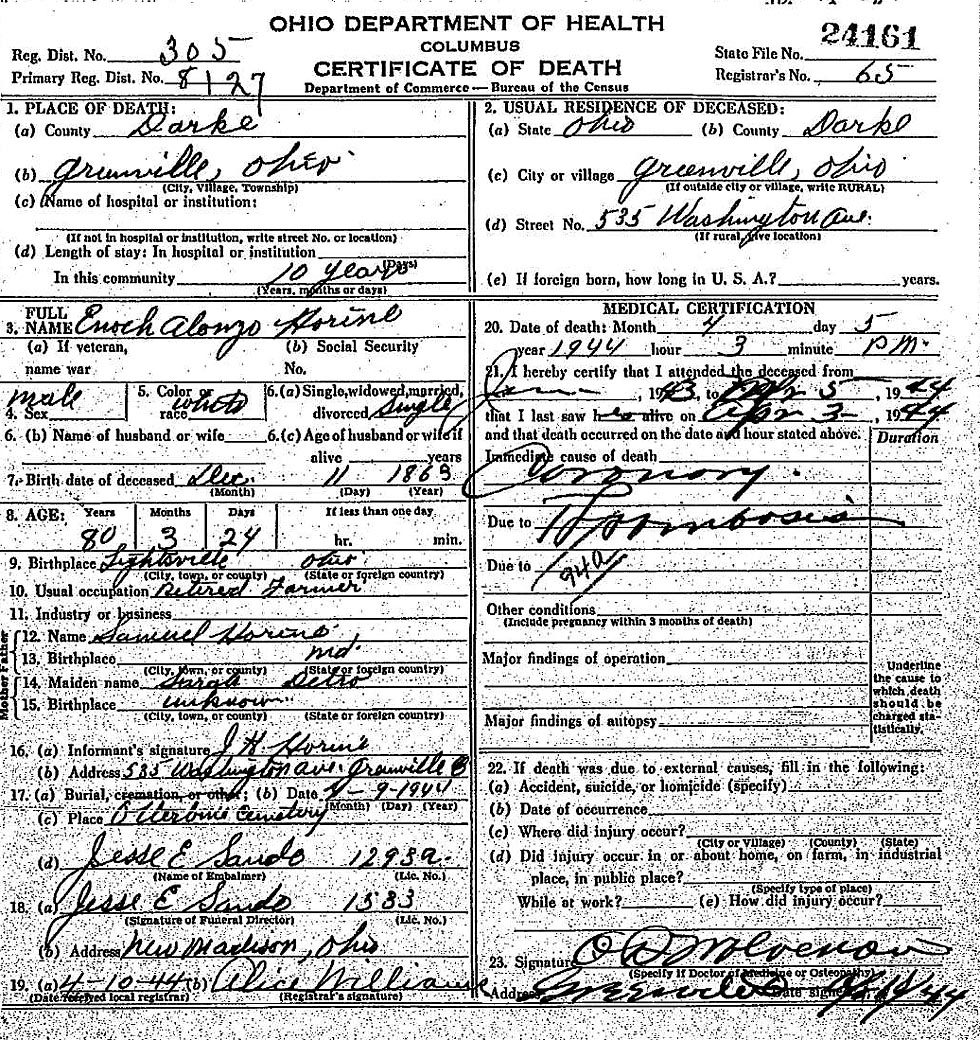 OHIO DEPARTMENT OF HEALTH
COLUMBUS
CERTIFICATE OF DEATH
Department of Commerce — Bureau of the Census
Reg. Dist. No. 305
Primary Reg. Dist. No. 8127
State File No. 24161
Registrar's No. 65
1. PLACE OF DEATH:
(a) County Darke
(b) Greenville, Ohio
(City, Village, Township)
(c) (Name of hospital or institution:
(If not in hospital or institution, write street No. or location)
(d) Length of stay: In hospital or institution
(Days)
In this community 10 years
(Years, months or days)
2. USUAL RESIDENCE OF DECEASED:
(a) State Ohio (b) County Darke
(c) City or village Greenville, Ohio
(If outside city or village, write RURAL)
(d) Street No. 535 Washington Ave.
(If rural, give location)
(e) If foreign born, how long in U. S. A.? years.
3. FULL NAME Enoch Alonzo Horine
(a) If veteran, name war
(b) Social Security No.
4. Sex male
5. Color or race white
6. (a) Single, widowed, married, divorced Single
6. (b) Name of husband or wife
6. (c) Age of husband or wife if alive years
7. Birth date of deceased Dec. 11 1863
(Month) (Day) (Year)
8. AGE: Years Months Days If less than one day
80 3 24 hr. min.
9. Birthplace Lightsville Ohio
(City, town, or county) (State or foreign country)
10. Usual occupation Retired Farmer
11. Industry or business
Mother Father
12. Name Samuel Horine
13. Birthplace Md.
(City, town, or county) (State or foreign country)
14. Maiden name Sarah Detro
15. Birthplace unknown
(City, town, or county) (State or foreign country)
16. (a) Informant's signature J H Horine
(b) Address 535 Washington ave. Greenville O
17. (a) Burial, cremation, or other; (b) Date 4-9-1944
(Month) (Day) (Year)
(c) Place Otterbine Cemetery
(d) Jesse E Sando 1293a.
(Name of Embalmer) (Lic. No.)
18. (a) Jesse E Sando 1533
(Signature of Funeral Director) (Lic. No.)
(b) Address New Madison, Ohio
19. (a) 4-10-44 (b) Alice Williams
(Date received local registrar) (Registrar's signature)
MEDICAL CERTIFICATION
20. Date of death: Month 4 day 5
year 1944 hour 3 minute P.M.
21. I hereby certify that I attended the deceased from
Jan, 1943, to Apr 5, 1944
that I last saw h alive on Apr 3, 1944
and that death occurred on the date and hour stated above.
Duration
Immediate cause of death
Coronary
Due to Thrombosis
Due to 94a
Other conditions
(Include pregnancy within 3 months of death)
Major findings of operation
Major findings of autopsy
Underline the cause to which death should be charged statistically.
22. If death was due to external causes, fill in the following:
(a) Accident, suicide, or homicide (specify)
(b) Date of occurrence
(c) Where did injury occur?
(City or Village) (County) (State)
(d) Did injury occur in or about home, on farm, in industrial
place, in public place?
(Specify type of place)
While at work? (e) How did injury occur?
23. Signature
(Specify if Doctor of Medicine or Osteopathy)
Address Greenville O Date signed